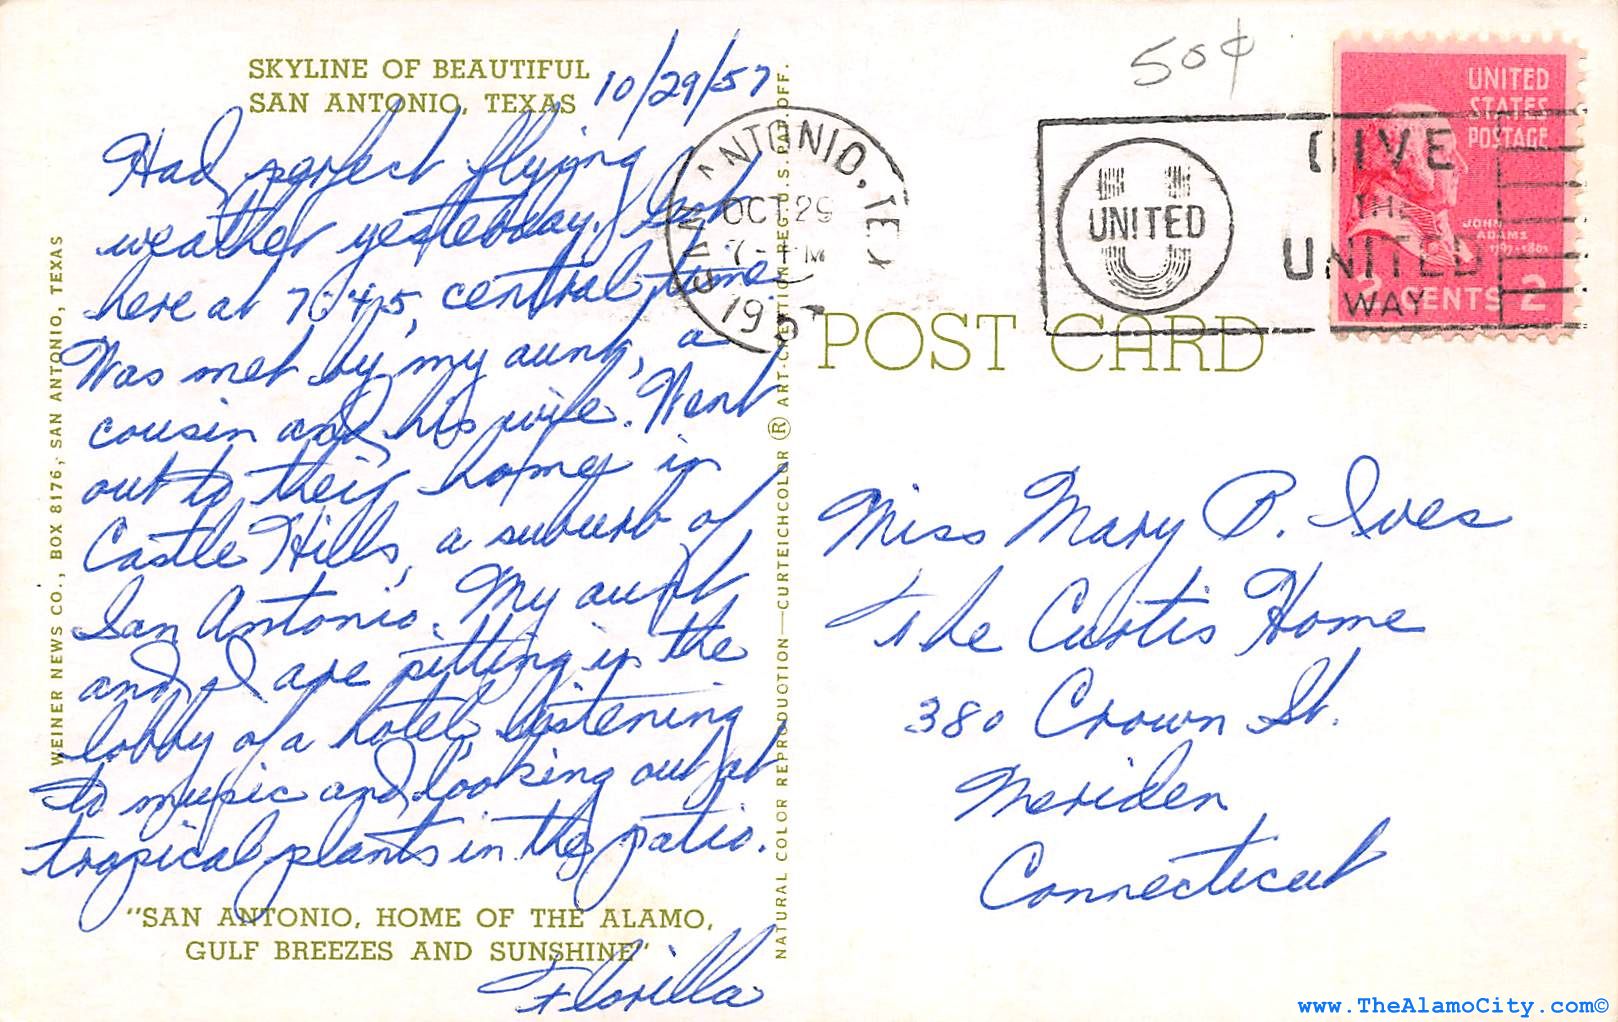 SKYLINE OF BEAUTIFUL
SAN ANTONIO, TEXAS
10/29/57
Had perfect flying
weather yesteday. Got
here at 7:45, central time
Was met by my aunt, a
cousin and his wife. Went
out to their home in
Castle Hills, a suburb of
San Antonio. My aunt
and I are sitting in the
lobby of a hotel, listening
to music and looking out at
tropical plants in the patio.
"SAN ANTONIO, HOME OF THE ALAMO,
GULF BREEZES AND SUNSHINE"
Florilla
WEINER NEWS CO., BOX 8176, SAN ANTONIO, TEXAS
NATURAL COLOR REPRODUCTION—CURTEICHCOLOR ® ART-CREATION REG. U.S. PAT. OFF.
SAN ANTONIO, TEX
OCT 29
7- PM
1957
50¢
UNITED
GIVE
THE
UNITED
WAY
UNITED
STATES
POSTAGE
JOHN
ADAMS
1797-1801
2 CENTS 2
POST CARD
Miss Mary P. Ives
The Curtis Home
380 Crown St.
Meriden
Connecticut
www.TheAlamoCity.com©